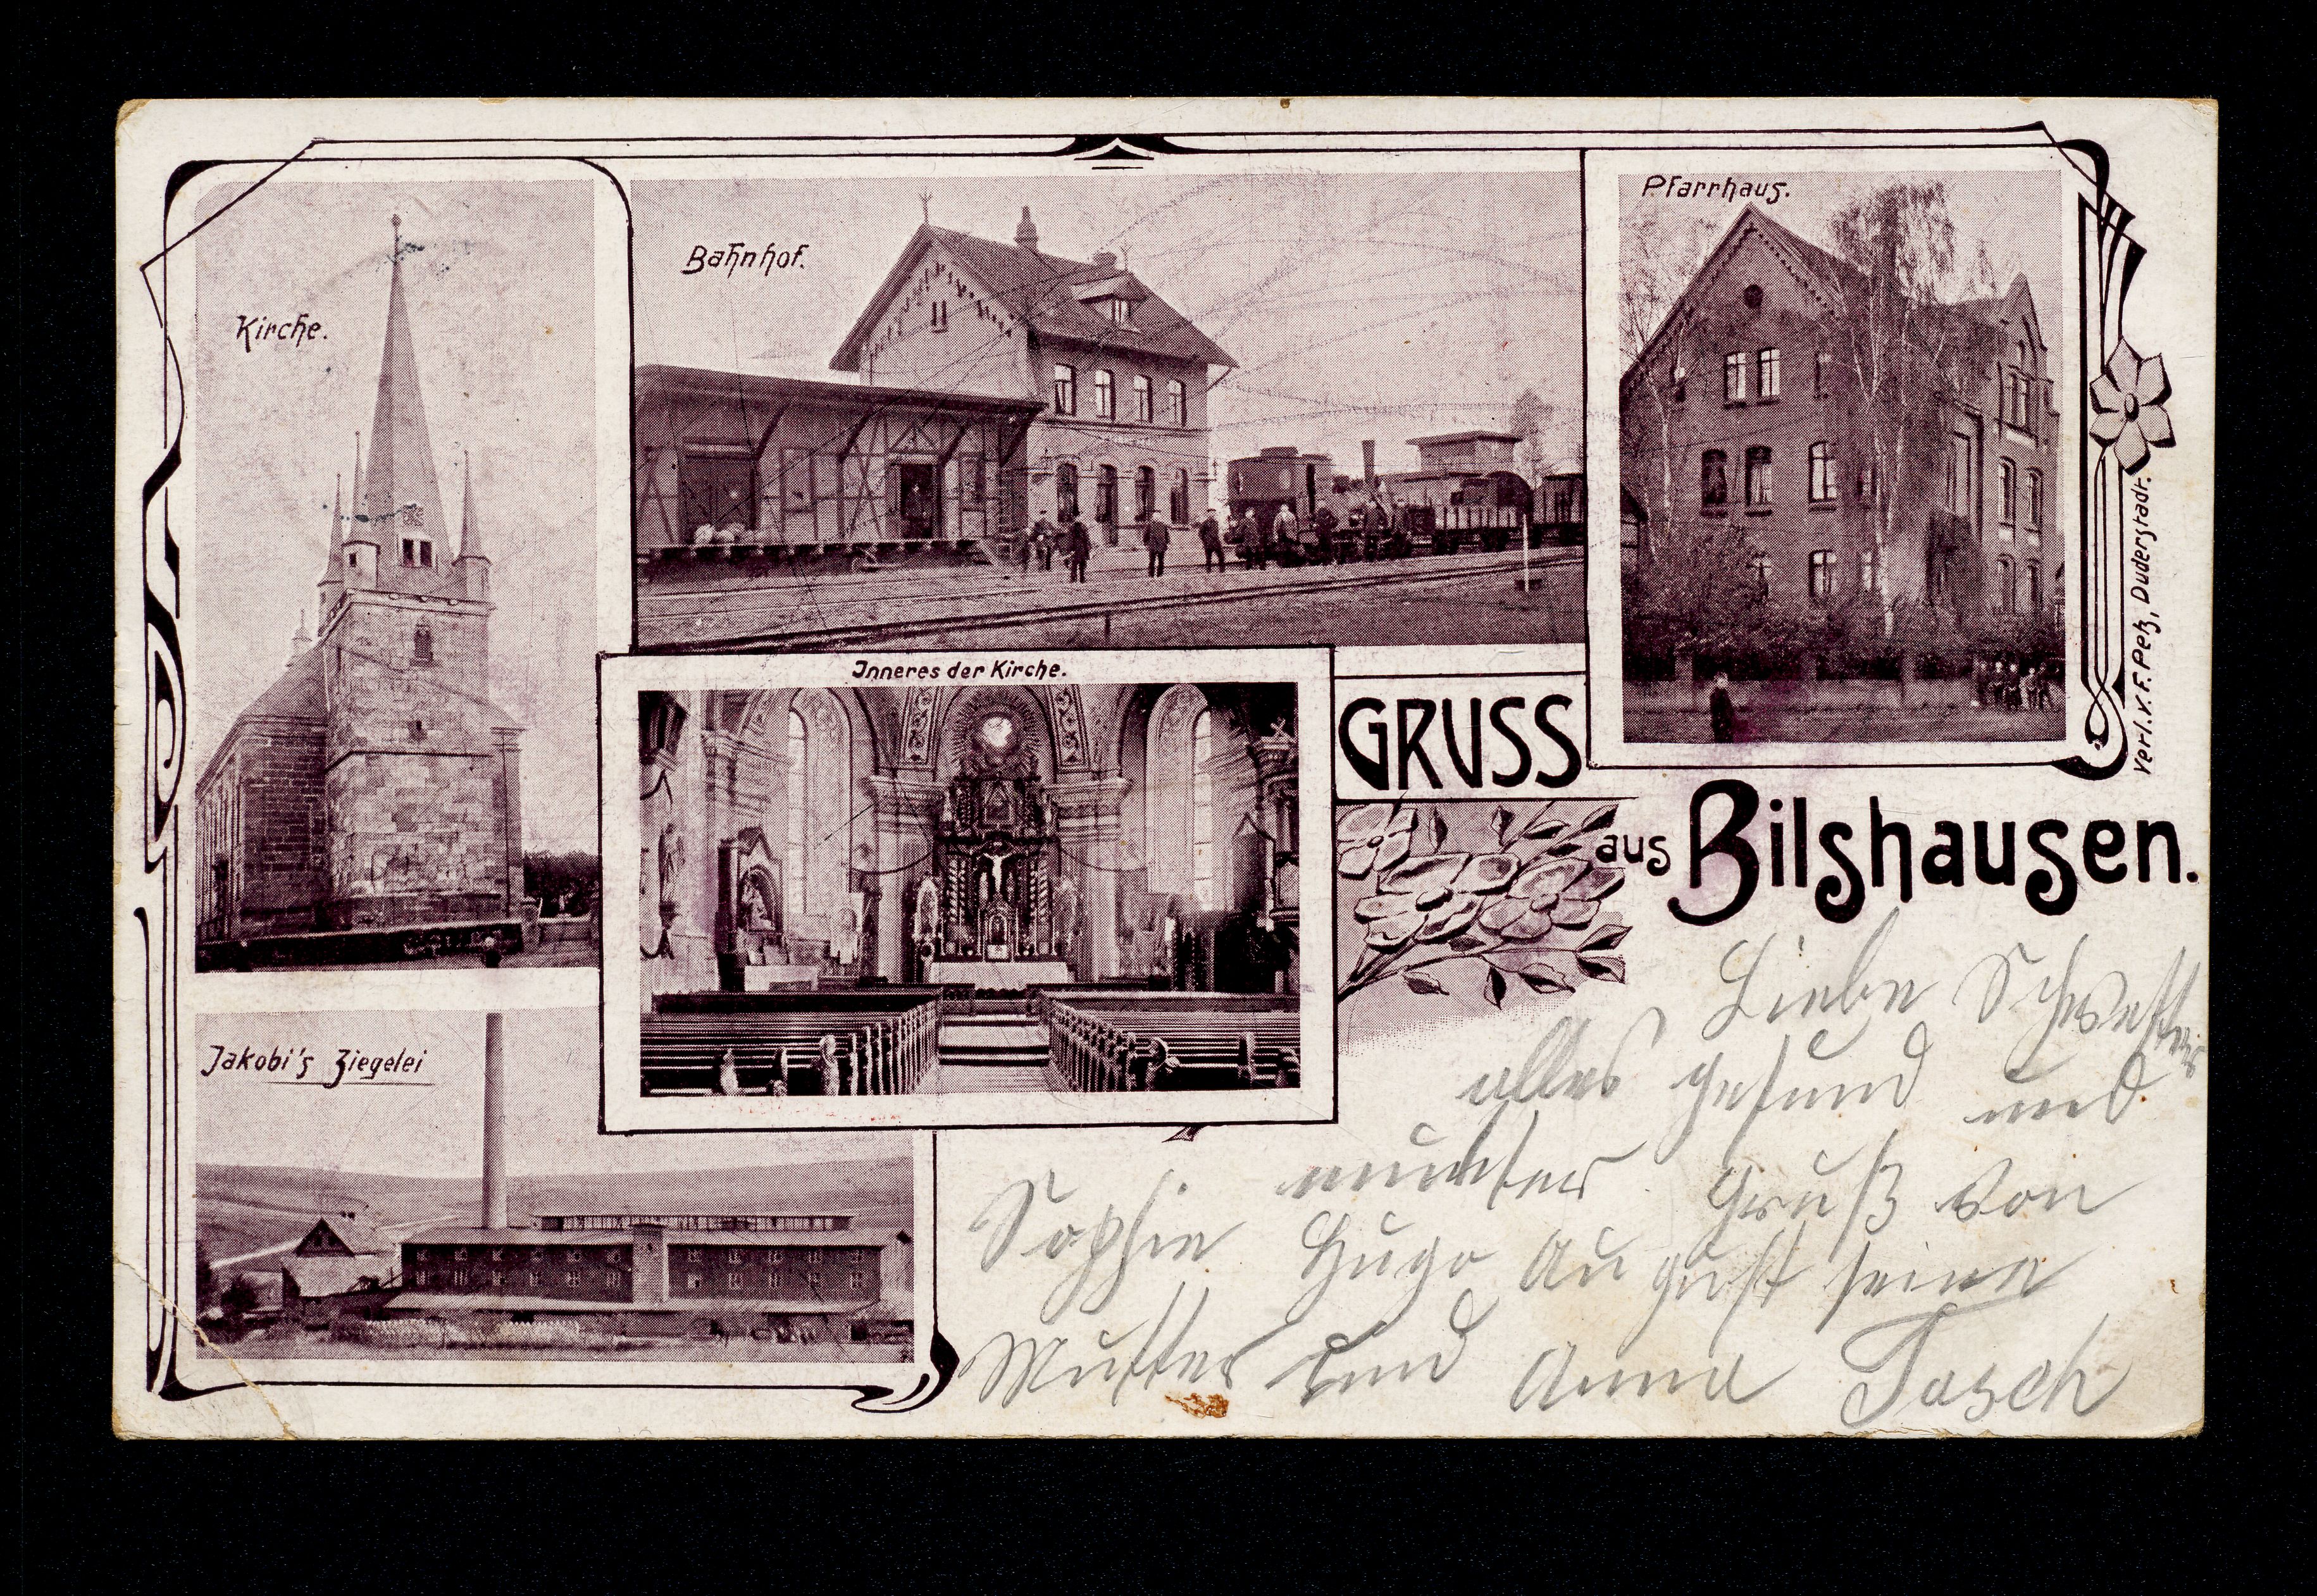 Kirche.
Bahnhof.
Pfarrhaus.
Inneres der Kirche.
Jakobi's Ziegelei
GRUSS
aus Bilshausen.
Verl. v. F. Petz, Duderstadt.
Liebe Schwester
alles gesund und
munter. Gruß von
Sophie Hugo August seine
Mutter und Anna Tasch